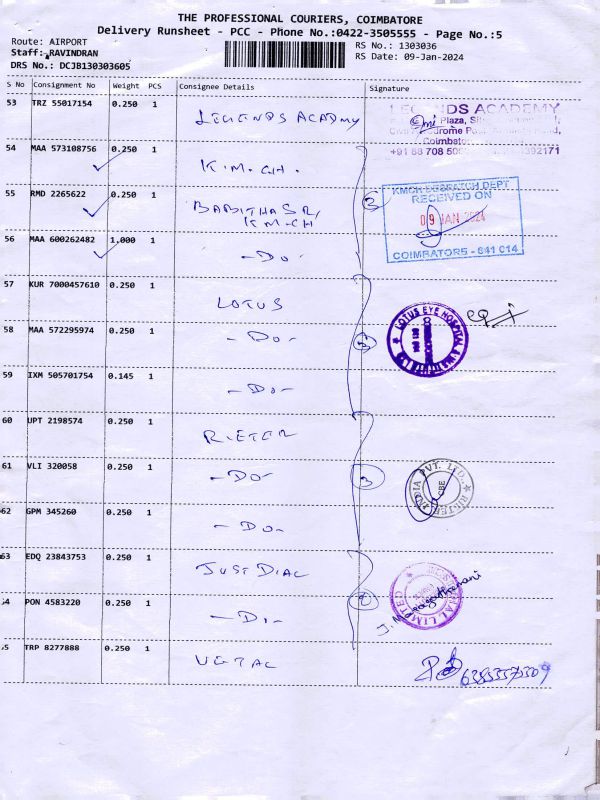 THE PROFESSIONAL COURIERS, COIMBATORE
Delivery Runsheet - PCC - Phone No.:0422-3505555 - Page No.:5
Route: AIRPORT
RS No.: 1303036
Staff: RAVINDRAN
RS Date: 09-Jan-2024
DRS No.: DCJB130303605
S No Consignment No Weight PCS Consignee Details Signature
53 TRZ 55017154 0.250 1 LEGENDS ACADEMY
LEGENDS ACADEMY
Plaza,
Coimbatore
54 MAA 573108756 0.250 1 K.M.CH.
55 RMD 2265622 0.250 1 BABITHA SR,
KMCH
3
KMCH DESPATCH DEPT
RECEIVED ON
09 JAN 2024
COIMBATORE - 641 014
56 MAA 600262482 1.000 1 -Do-
57 KUR 7000457610 0.250 1 LOTUS
LOTUS EYE HOSPITAL
58 MAA 572295974 0.250 1 -Do-
59 IXM 505701754 0.145 1 -Do-
60 UPT 2198574 0.250 1 RIETER
61 VLI 320058 0.250 1 -Do-
3
RIETER INDIA PVT. LTD.
CBE
62 GPM 345260 0.250 1 -Do-
63 EDQ 23843753 0.250 1 JUST DIAL
64 PON 4583220 0.250 1 -Do-
2
LIMITED
65 TRP 8277888 0.250 1 VGTAL